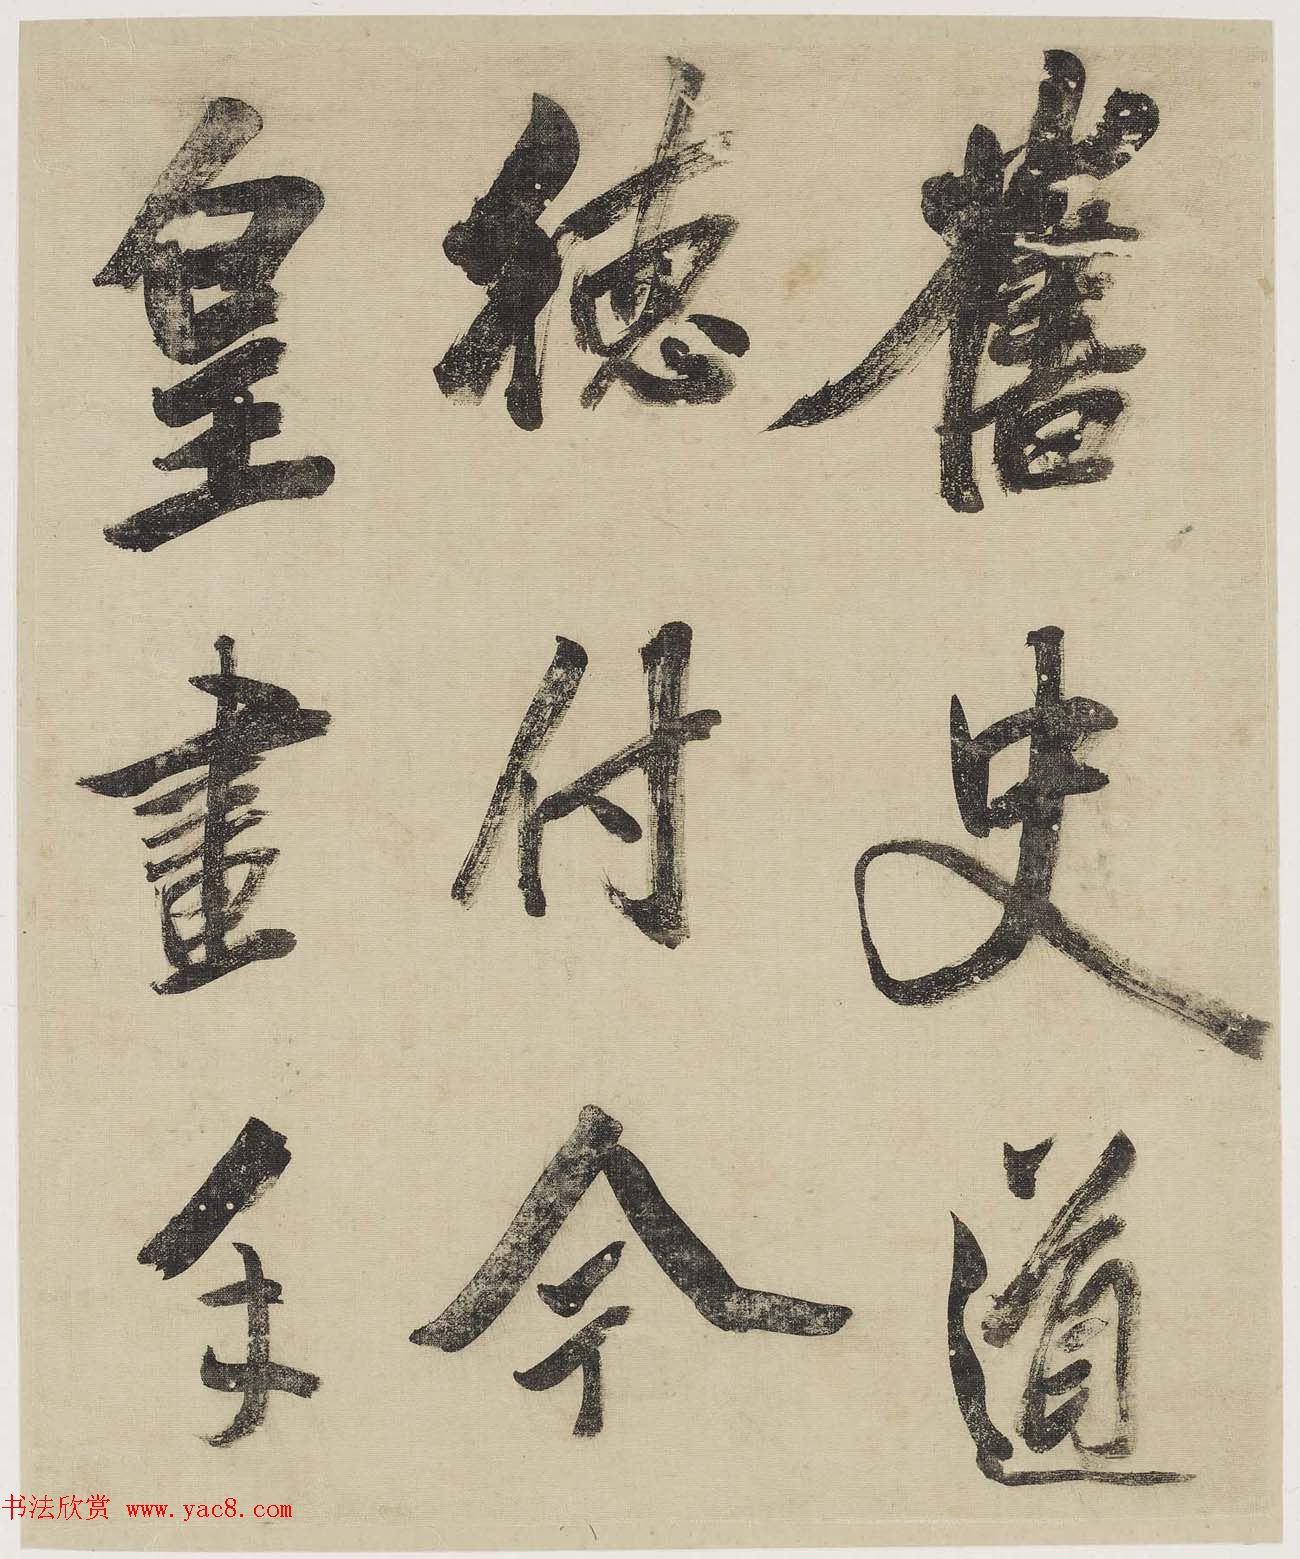 舊史道
德付今
皇畫年
书法欣赏 www.yac8.com